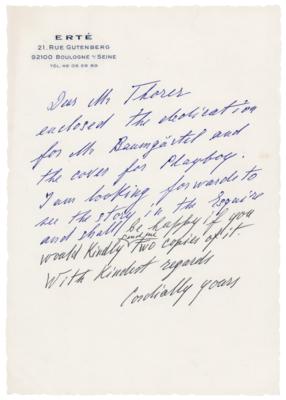 ERTÉ
21, RUE GUTENBERG
92100 BOULOGNE S/ SEINE
TÉL. 46 05 09 89
Dear Mr Thorer
enclosed the dedication
for Mr Baumgärtel and
the cover for Playboy.
I am looking forwards to
see the story in the Esquire
and shall be happy if you
would kindly send me two copies of it
With kindest regards
Cordially yours